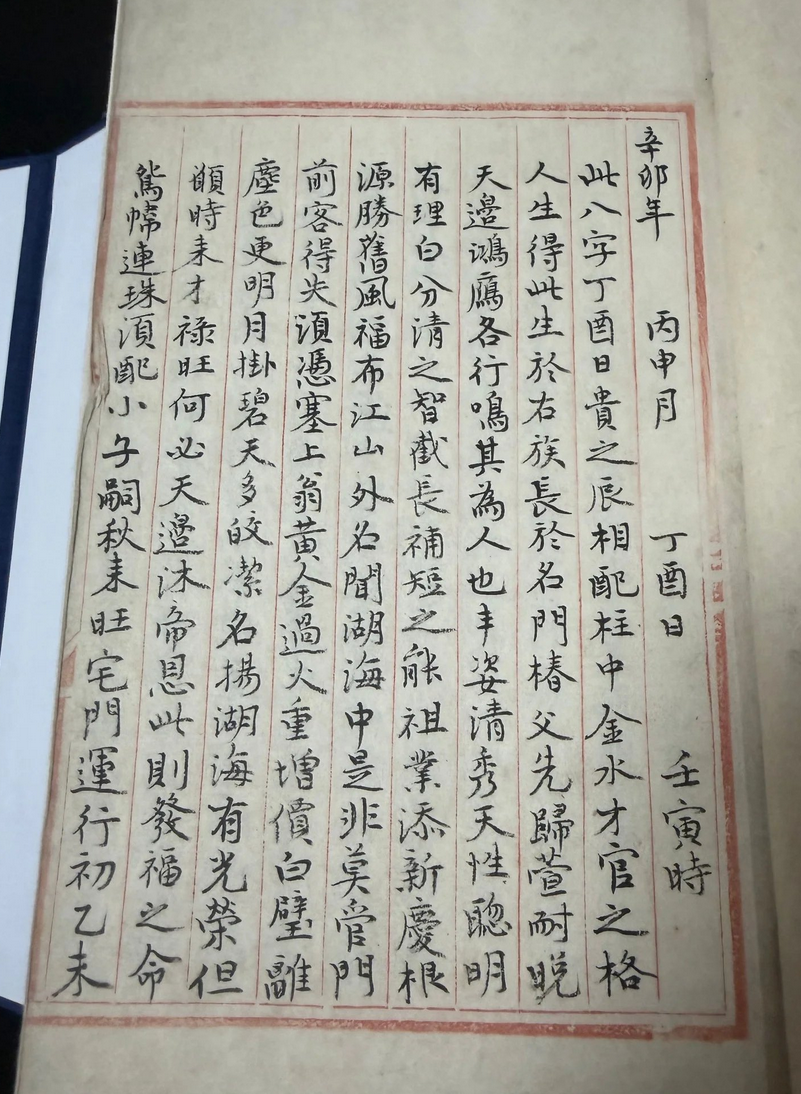 辛卯年 丙申月 丁酉日 壬寅時
此八字丁酉日貴之辰相配柱中金水才官之格
人生得此生於右族長於名門椿父先歸萱耐晚
天邉鴻鴈各行鳴其為人也丰姿清秀天性聰明
有理白分清之智截長補短之能祖業添新慶根
源勝舊風福布江山外名聞湖海中是非莫管門
前客得失須憑塞上翁黃金過火重增價白璧離
塵色更明月掛碧天多皎潔名揚湖海有光榮但
願時来才祿旺何必天邉沐帝恩此則發福之命
鴛幃連珠須配小子嗣秋来旺宅門運行初乙未